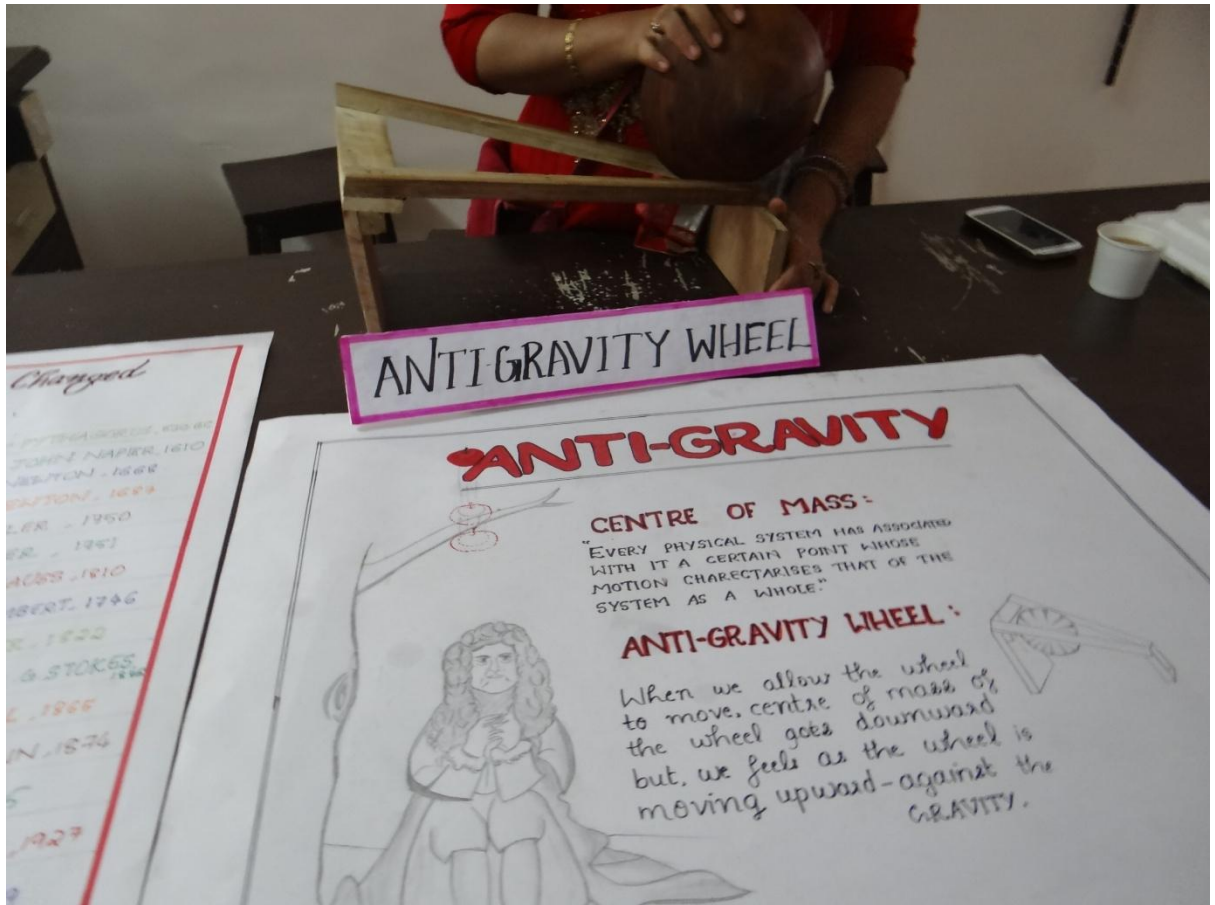 Changed
JOHN NAPIER, 1610
NEWTON, 1668
NEWTON, 1687
1750
1751
1810
1746
1822
G. STOKES
1865
1874
1927
ANTI-GRAVITY WHEEL
ANTI-GRAVITY
CENTRE OF MASS:
"EVERY PHYSICAL SYSTEM HAS ASSOCIATED
WITH IT A CERTAIN POINT WHOSE
MOTION CHARECTARISES THAT OF THE
SYSTEM AS A WHOLE."
ANTI-GRAVITY WHEEL:
When we allow the wheel
to move, centre of mass of
the wheel goes downward
but, we feels as the wheel is
moving upward - against the
GRAVITY.